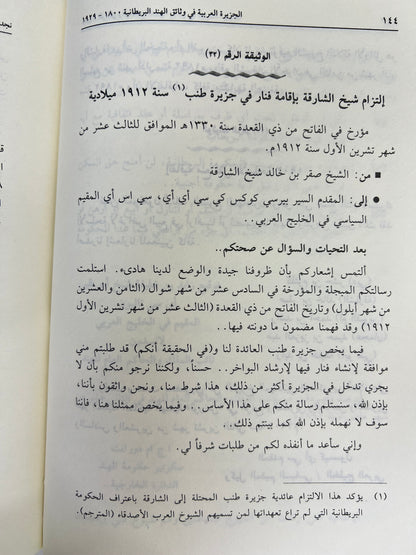 ١٤٤
الجزيرة العربية في وثائق الهند البريطانية ١٨٠٠ - ١٩٢٩
الوثيقة الرقم (٣٢)
إلتزام شيخ الشارقة بإقامة فنار في جزيرة طنب(١) سنة ١٩١٢ ميلادية
مؤرخ في الفاتح من ذي القعدة سنة ١٣٣٠هـ الموافق للثالث عشر من
شهر تشرين الأول سنة ١٩١٢م.
■ من: الشيخ صقر بن خالد شيخ الشارقة
● إلى: المقدم السير بيرسي كوكس كي سي أي أي، سي اس أي المقيم
السياسي في الخليج العربي..
بعد التحيات والسؤال عن صحتكم..
ألتمس إشعاركم بأن ظروفنا جيدة والوضع لدينا هادىء. استلمت
رسالتكم المبجلة والمؤرخة في السادس عشر من شهر شوال (الثامن والعشرين
من شهر أيلول) وتاريخ الفاتح من ذي القعدة (الثالث عشر من شهر تشرين الأول
١٩١٢) وقد فهمنا مضمون ما دونته فيها..
فيما يخص جزيرة طنب العائدة لنا و(في الحقيقة أنكم) قد طلبتم مني
موافقة لإنشاء فنار فيها لإرشاد البواخر.. حسناً، ولكننا نرجو منكم بأن لا
يجري تدخل في الجزيرة أكثر من ذلك، هذا شرط منا، ونحن واثقون بأننا،
بإذن الله، سنستلم رسالة منكم على هذا الأساس.. وفيما يخص ممثلنا هنا، فاننا
سوف لا نهمله بإذن الله كما بينتم ذلك..
وإني سأعد ما أنفذه لكم من طلبات شرفاً لي.
(١) يؤكد هذا الالتزام عائدية جزيرة طنب المحتلة إلى الشارقة باعتراف الحكومة
البريطانية التي لم تراع تعهداتها لمن تسميهم الشيوخ العرب الأصدقاء (المترجم).